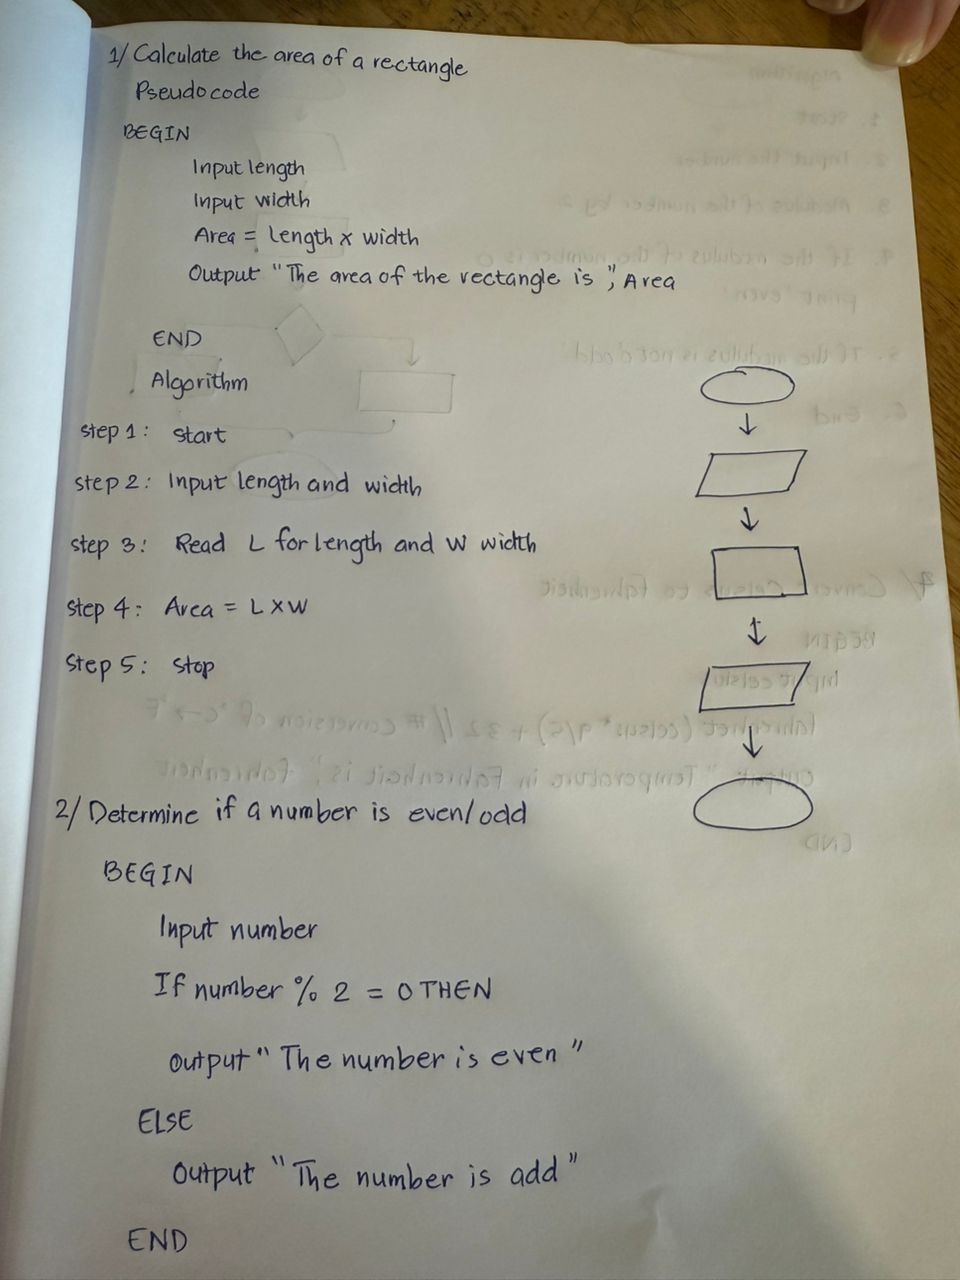 1/ Calculate the area of a rectangle
Pseudocode
BEGIN
Input length
Input width
Area = Length x width
Output "The area of the rectangle is ", Area
END
Algorithm
step 1: start
step 2: Input length and width
step 3: Read L for length and W width
step 4: Area = L x W
step 5: stop
2/ Determine if a number is even/odd
BEGIN
Input number
If number % 2 = 0 THEN
output " The number is even "
ELSE
output " The number is add "
END